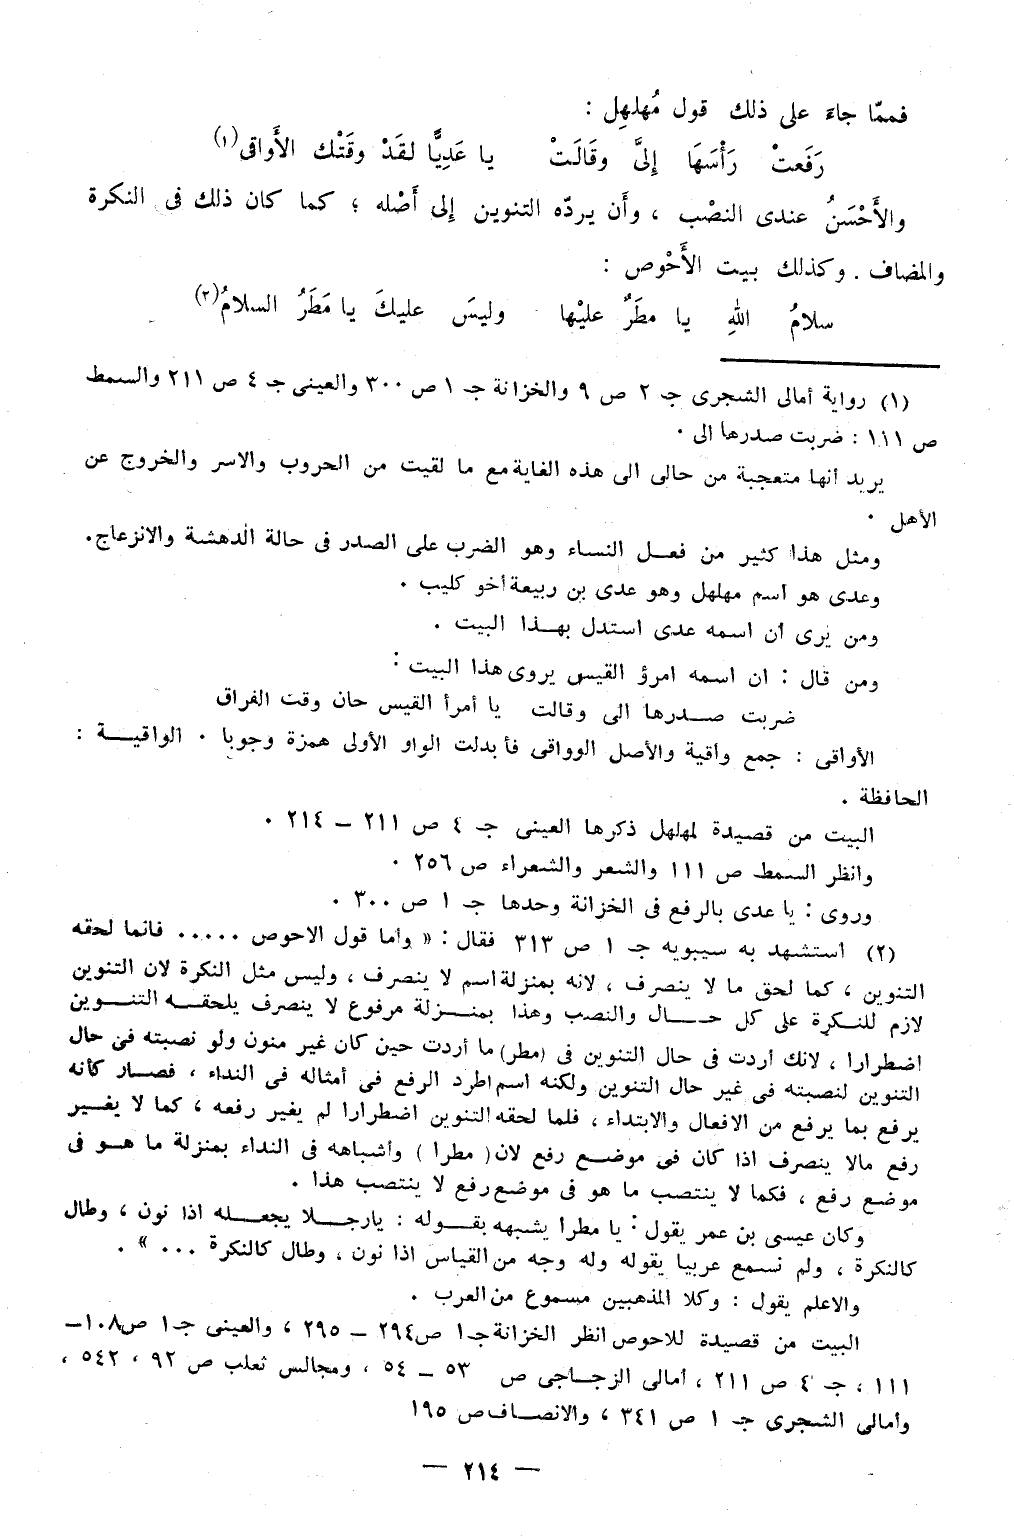 فممّا جاءَ على ذلك قول مُهلهِل :
رَفَعتْ رَأْسَهَا إِلىَّ وقَالَتْ يا عَدِيًّا لقَدْ وقَتْك الأَواقى(١)
والأَحْسَنُ عندى النصْب ، وأَن يردّه التنوين إِلى أَصْله ؛ كما كان ذلك فى النكرة
والمضاف . وكذلك بيت الأَحْوص :
سلامُ اللهِ يا مطَرٌ عليْها وليسَ عليكَ يا مَطَرُ السلامُ(٢)
(١) رواية أمالى الشجرى جـ ٢ ص ٩ والخزانة جـ ١ ص ٣٠٠ والعينى جـ ٤ ص ٢١١ والسمط
ص ١١١ : ضربت صدرها الى .
يريد أنها متعجبة من حالى الى هذه الغاية مع ما لقيت من الحروب والاسر والخروج عن
الأهل .
ومثل هذا كثير من فعـل النساء وهو الضرب على الصدر فى حالة الدهشة والانزعاج.
وعدى هو اسم مهلهل وهو عدى بن ربيعة أخو كليب .
ومن يرى أن اسمه عدى استدل بهـذا البيت .
ومن قال : ان اسمه امرؤ القيس يروى هذا البيت :
ضربت صـدرها الى وقالت يا أمرأ القيس حان وقت الفراق
الأواقى : جمع واقية والأصل الوواقى فأبدلت الواو الأولى همزة وجوبا . الواقيـة :
الحافظة .
البيت من قصيدة لمهلهل ذكرها العينى جـ ٤ ص ٢١١ – ٢١٤ .
وانظر السمط ص ١١١ والشعر والشعراء ص ٢٥٦ .
وروى : يا عدى بالرفع فى الخزانة وحدها جـ ١ ص ٣٠٠ .
(٢) استشهد به سيبويه جـ ١ ص ٣١٣ فقال : « وأما قول الاحوص ..... فانما لحقه
التنوين ، كما لحق ما لا ينصرف ، لانه بمنزلة اسم لا ينصرف ، وليس مثل النكرة لان التنوين
لازم للنـكرة على كل حـــال والنصب وهذا بمنـزلة مرفوع لا ينصرف يلحقـه التنـوين
اضطرارا ، لانك أردت فى حال التنوين فى (مطر) ما أردت حين كان غير منون ولو نصبته فى حال
التنوين لنصبته فى غير حال التنوين ولكنه اسم اطرد الرفع فى أمثاله فى النداء ، فصـار كأنه
يرفع بما يرفع من الافعال والابتداء ، فلما لحقه التنوين اضطرارا لم يغير رفعه ، كما لا يغـير
رفع مالا ينصرف اذا كان فى موضـع رفع لان ( مطرا ) وأشباهه فى النداء بمنزلة ما هـو فى
موضع رفع ، فكما لا ينتصب ما هو فى موضع رفع لا ينتصب هذا .
وكان عيسى بن عمر يقول : يا مطرا يشبهه بقـوله : يارجـلا يجعـله اذا نون ، وطال
كالنكرة ، ولم نسمع عربيا يقوله وله وجه من القياس اذا نون ، وطال كالنكرة ... » .
والاعلم يقول : وكلا المذهبين مسموع من العرب .
البيت من قصيدة للاحوص انظر الخزانة جـ١ ص٢٩٤ – ٢٩٥ ، والعينى جـ١ ص١٠٨–
١١١ ، جـ ٤ ص ٢١١ ، أمالى الزجـاجى ص ٥٣ – ٥٤ ، ومجالس ثعلب ص ٩٢ ، ٥٤٢ ،
وأمالى الشجرى جـ ١ ص ٣٤١ ، والانصـاف ص ١٩٥
– ٢١٤ –